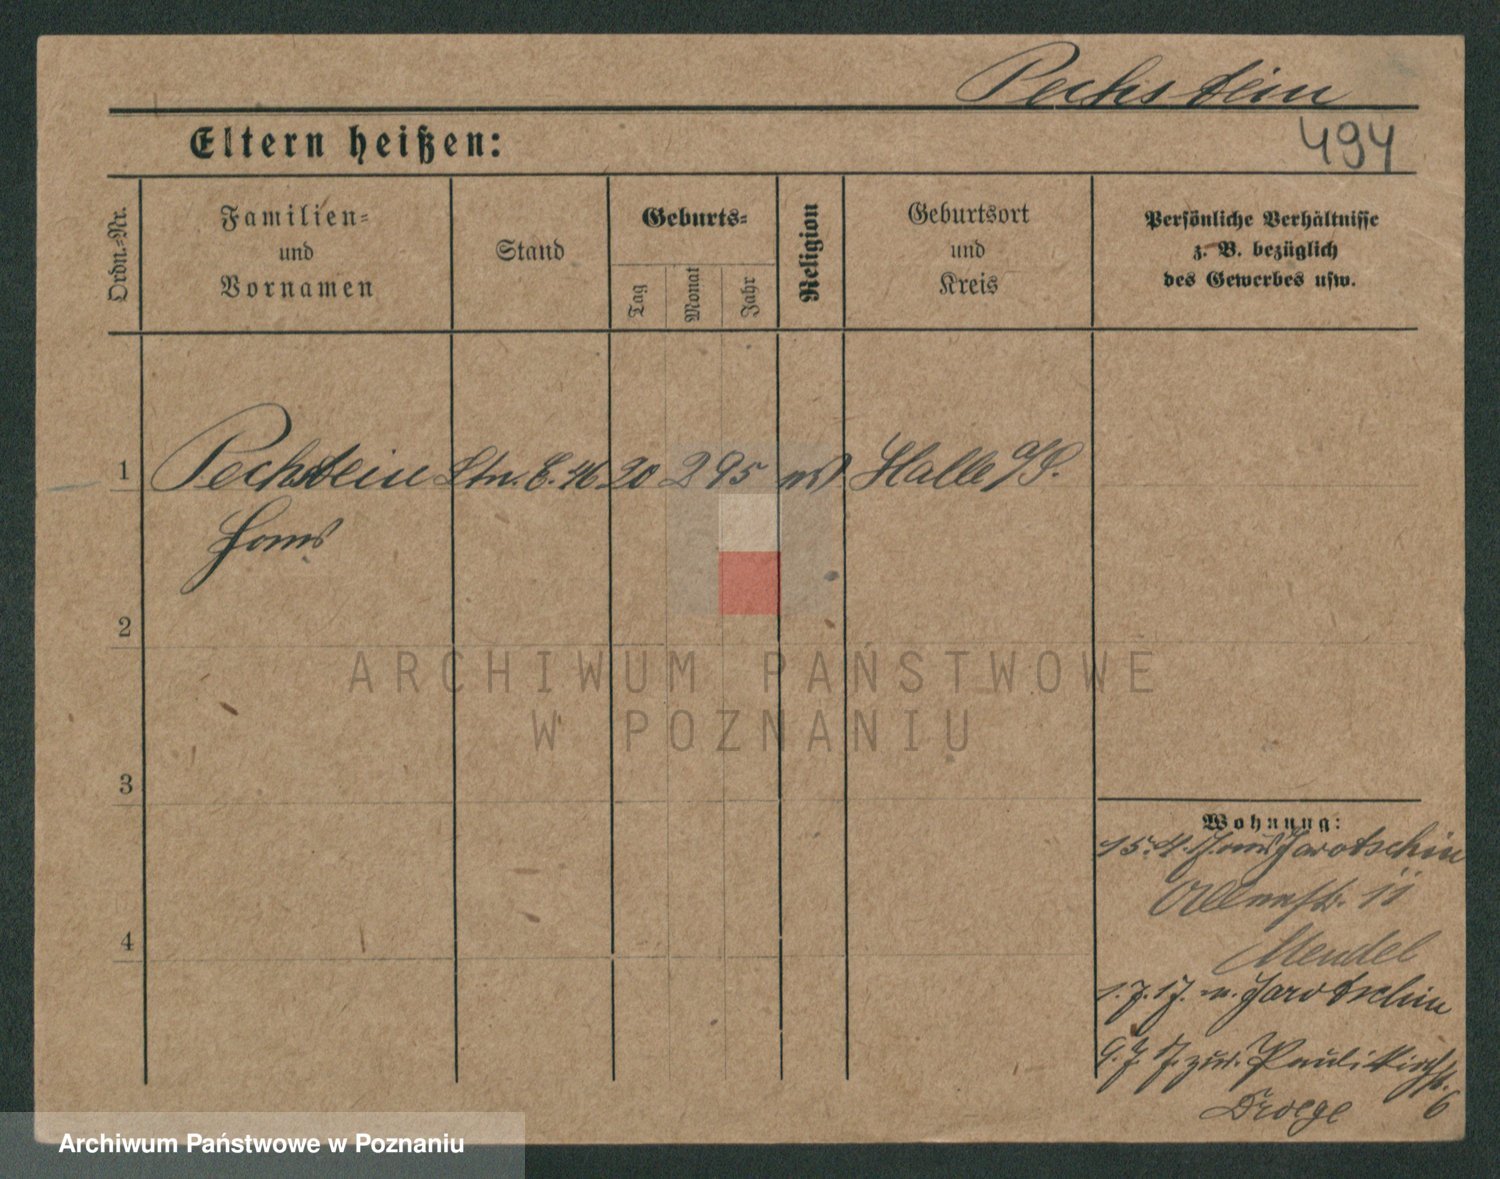 Pechstein
494
Eltern heißen:
Ordn.-Nr.
Familien-
und
Vornamen
Stand
Geburts-
Tag
Monat
Jahr
Religion
Geburtsort
und
Kreis
Persönliche Verhältnisse
z. B. bezüglich
des Gewerbes usw.
1 Pechstein Ltn. 46 20 2 95 Halle a/S.
Hans
2
3
4
Wohnung:
15.4.17. aus Jarotschin
11
Mendel
1.7.17. n. Jarotschin
9.7.17. zur. Paulikirchstr.
6
Droege
ARCHIWUM PAŃSTWOWE
W POZNANIU
Archiwum Państwowe w Poznaniu